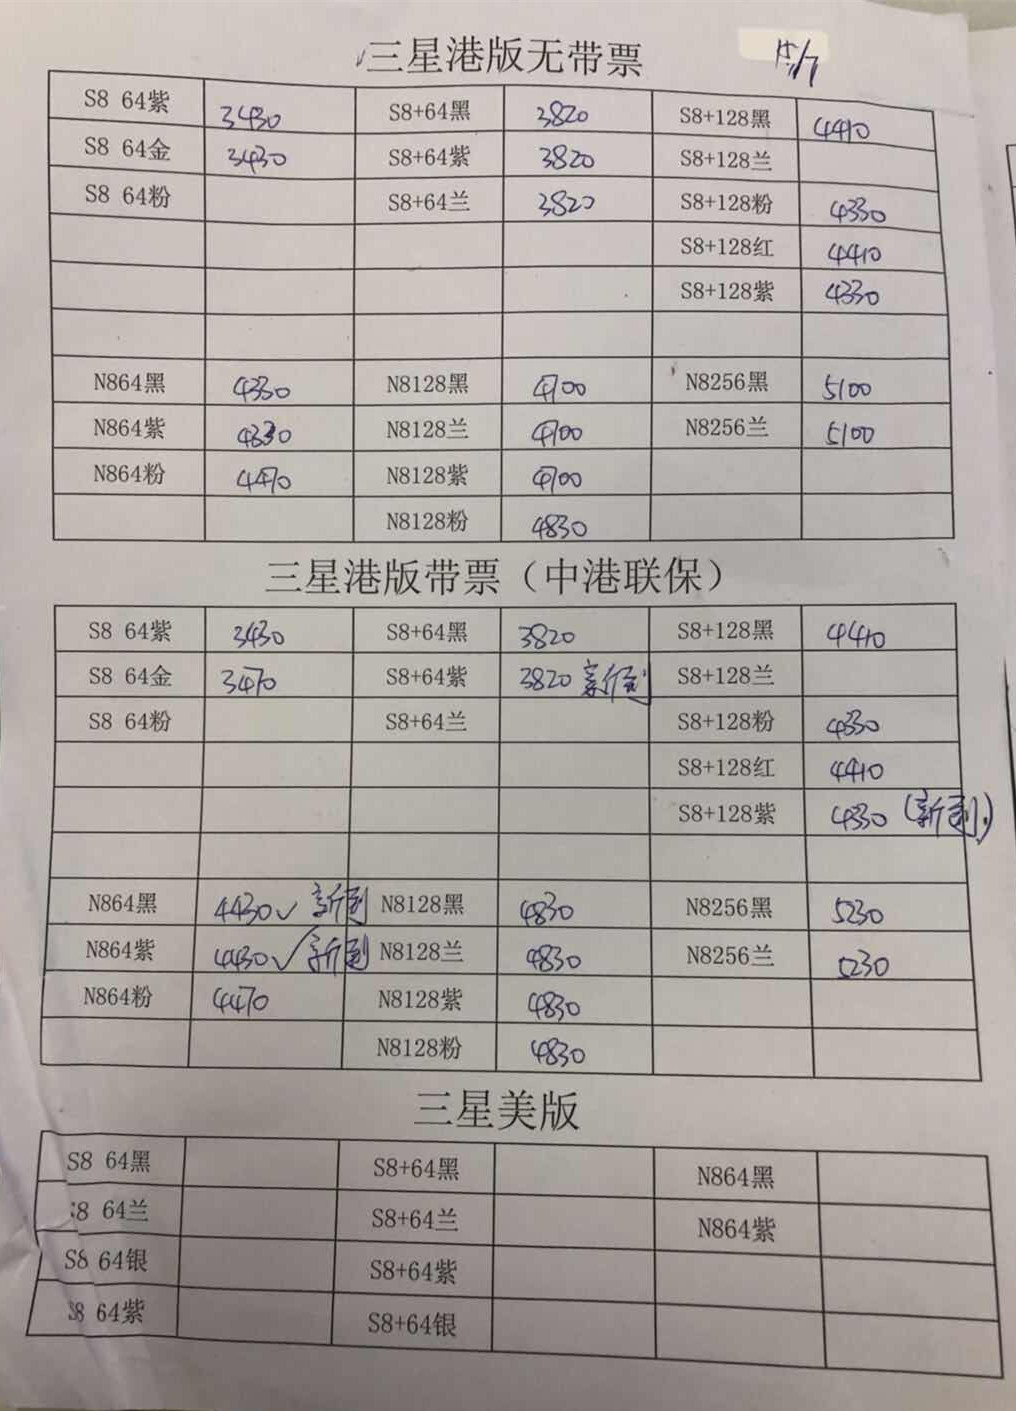 三星港版无带票
S8 64紫 3430 S8+64黑 3820 S8+128黑 4410
S8 64金 3430 S8+64紫 3820 S8+128兰
S8 64粉 S8+64兰 3820 S8+128粉 4330
S8+128红 4410
S8+128紫 4330
N864黑 4330 N8128黑 4700 N8256黑 5100
N864紫 4330 N8128兰 4700 N8256兰 5100
N864粉 4470 N8128紫 4700
N8128粉 4830
三星港版带票（中港联保）
S8 64紫 3430 S8+64黑 3820 S8+128黑 4410
S8 64金 3470 S8+64紫 3820 新到 S8+128兰
S8 64粉 S8+64兰 S8+128粉 4330
S8+128红 4410
S8+128紫 4330 (新到)
N864黑 4430✓ 新到 N8128黑 4830 N8256黑 5230
N864紫 4430✓ 新到 N8128兰 4830 N8256兰 5230
N864粉 4470 N8128紫 4830
N8128粉 4830
三星美版
S8 64黑 S8+64黑 N864黑
S8 64兰 S8+64兰 N864紫
S8 64银 S8+64紫
S8 64紫 S8+64银